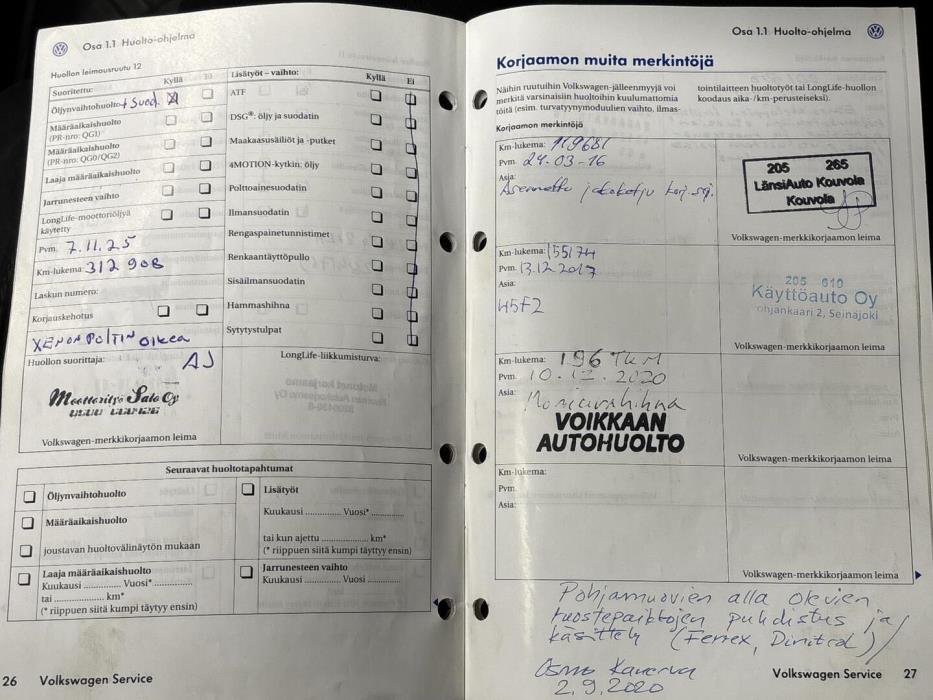 Osa 1.1 Huolto-ohjelma
Huollon leimausruutu 12
Suoritettu: Kyllä Ei
Öljynvaihtohuolto + Suod. X
Määräaikaishuolto
(PR-nro: QG1)
Määräaikaishuolto
(PR-nro: QG0/QG2)
Laaja määräaikaishuolto
Jarrunesteen vaihto
LongLife-moottoriöljyä
käytetty
Pvm. 7.11.25
Km-lukema: 312 908
Laskun numero:
Korjauskehotus
XENON POLTIN oikea
Huollon suorittaja: AJ
Moottorityö Salo Oy
Volkswagen-merkkikorjaamon leima
Lisätyöt – vaihto: Kyllä Ei
ATF
DSG®: öljy ja suodatin
Maakaasusäiliöt ja -putket
4MOTION-kytkin: öljy
Polttoainesuodatin
Ilmansuodatin
Rengaspainetunnistimet
Renkaantäyttöpullo
Sisäilmansuodatin
Hammashihna
Sytytystulpat
LongLife-liikkumisturva:
Seuraavat huoltotapahtumat
Öljynvaihtohuolto
Määräaikaishuolto
joustavan huoltovälinäytön mukaan
Laaja määräaikaishuolto
Kuukausi .............. Vuosi* ..................
tai .................... km*
(* riippuen siitä kumpi täytyy ensin)
Lisätyöt
Kuukausi .............. Vuosi* ..............
tai kun ajettu .................. km*
(* riippuen siitä kumpi täyttyy ensin)
Jarrunesteen vaihto
Kuukausi .............. Vuosi ..............
26 Volkswagen Service
Osa 1.1 Huolto-ohjelma
Korjaamon muita merkintöjä
Näihin ruutuihin Volkswagen-jälleenmyyjä voi
merkitä varsinaisiin huoltoihin kuulumattomia
töitä (esim. turvatyynymoduulien vaihto, ilmas-
tointilaitteen huoltotyöt tai LongLife-huollon
koodaus aika-/km-perusteiseksi).
Korjaamon merkintöjä
Km-lukema: 119681
Pvm. 24-03-16
Asia:
Asennettu jakoketju korj.srj.
205 265
LänsiAuto Kouvola
Kouvola
Volkswagen-merkkikorjaamon leima
Km-lukema: 155174
Pvm. 13.12.2017
Asia:
45F2
205 610
Käyttöauto Oy
ohjankaari 2, Seinäjoki
Volkswagen-merkkikorjaamon leima
Km-lukema: 196 TKM
Pvm. 10.12.2020
Asia: Moniurahihna
VOIKKAAN
AUTOHUOLTO
Volkswagen-merkkikorjaamon leima
Km-lukema:
Pvm.
Asia:
Volkswagen-merkkikorjaamon leima
Pohjamuovien alla olevien
ruostepaikkojen puhdistus ja
käsittely (Ferrex, Dinitrol)
Osmo Kanerva
2.9.2020
Volkswagen Service 27